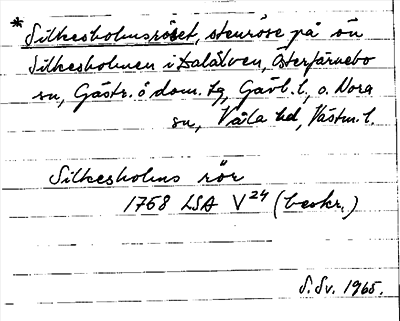 * Silkesholmsröset, stenröse på ön
Silkesholmen i Dalälven, Österfärnebo
sn, Gästr. ö. dom. tg, Gävl. l., o. Nora
sn, Våla hd, Västm. l.
Silkesholms rör
1758 LSA V24 (beskr.)
S. Sv. 1965.